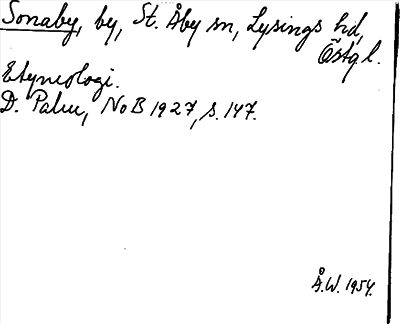 Sonaby, by, St. Åby sn, Lysings hd,
Östgl.
Etymologi.
D. Palm, NoB 1927, s. 147.
Å.W. 1954.